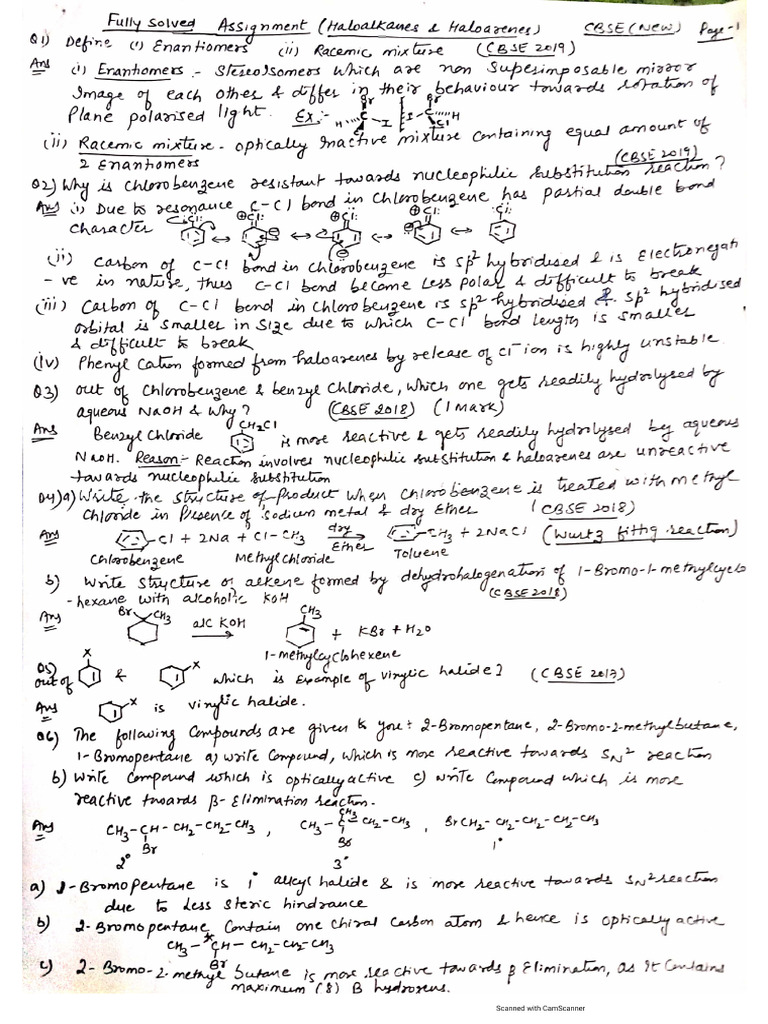 Fully Solved Assignment (Haloalkanes & Haloarenes) CBSE (New) Page-1
Q1) Define (i) Enantiomers (ii) Racemic mixture (CBSE 2019)
Ans (i) Enantiomers - Stereoisomers which are non superimposable mirror
Image of each other & differ in their behaviour towards rotation of
Plane polarised light. Ex:-
(ii) Racemic mixture - optically Inactive mixture containing equal amount of
2 Enantiomers (CBSE 2019)
Q2) Why is chlorobenzene resistant towards nucleophilic substitution reaction?
Ans i) Due to resonance C-Cl bond in chlorobenzene has partial double bond
character
(ii) Carbon of C-Cl bond in chlorobenzene is sp² hybridised & is Electronegati
-ve in nature, thus C-Cl bond become less polar & difficult to break
(iii) Carbon of C-Cl bond in chlorobenzene is sp² hybridised & sp² hybridised
orbital is smaller in size due to which C-Cl bond length is smaller
& difficult to break
(iv) Phenyl Cation formed from haloarenes by release of Cl⁻ ion is highly unstable.
Q3) out of Chlorobenzene & benzyl Chloride, which one gets readily hydrolysed by
aqueous NaOH & Why? (CBSE 2018) (1 Mark)
Ans Benzyl Chloride CH2Cl is more reactive & gets readily hydrolysed by aqueous
NaOH. Reason:- Reaction involves nucleophilic substitution & haloarenes are unreactive
towards nucleophilic substitution
Q4)a) Write the structure of Product when Chlorobenzene is treated with methyl
Chloride in Presence of sodium metal & dry Ether (CBSE 2018)
Ans -Cl + 2Na + Cl-CH3 dry Ether → -CH3 + 2NaCl (Wurtz fittig reaction)
Chlorobenzene Methyl Chloride Toluene
b) Write structure of alkene formed by dehydrohalogenation of 1-Bromo-1-methylcyclo
-hexane with alcoholic KOH (CBSE 2018)
Ans Br CH3 alc KOH → CH3 + KBr + H2O
1-methylcyclohexene
Q5) out of X & X which is Example of vinylic halide? (CBSE 2017)
Ans X is vinylic halide.
Q6) The following Compounds are given to you: 2-Bromopentane, 2-Bromo-2-methylbutane,
1-Bromopentane a) write Compound, which is more reactive towards SN2 reaction
b) Write Compound which is optically active c) Write Compound which is more
reactive towards β-Elimination reaction.
Ans CH3-CH-CH2-CH2-CH3, CH3-C-CH2-CH3, BrCH2-CH2-CH2-CH2-CH3
Br CH3 Br
2° 3° 1°
a) 1-Bromopentane is 1° alkyl halide & is more reactive towards SN2 reaction
due to Less Steric hindrance
b) 2-Bromopentane Contain one chiral Carbon atom & hence is optically active
CH3-*CH-CH2-CH2-CH3
Br
c) 2-Bromo-2-methyl butane is more reactive towards β Elimination, as it Contains
maximum (8) β hydrogens.
Scanned with CamScanner